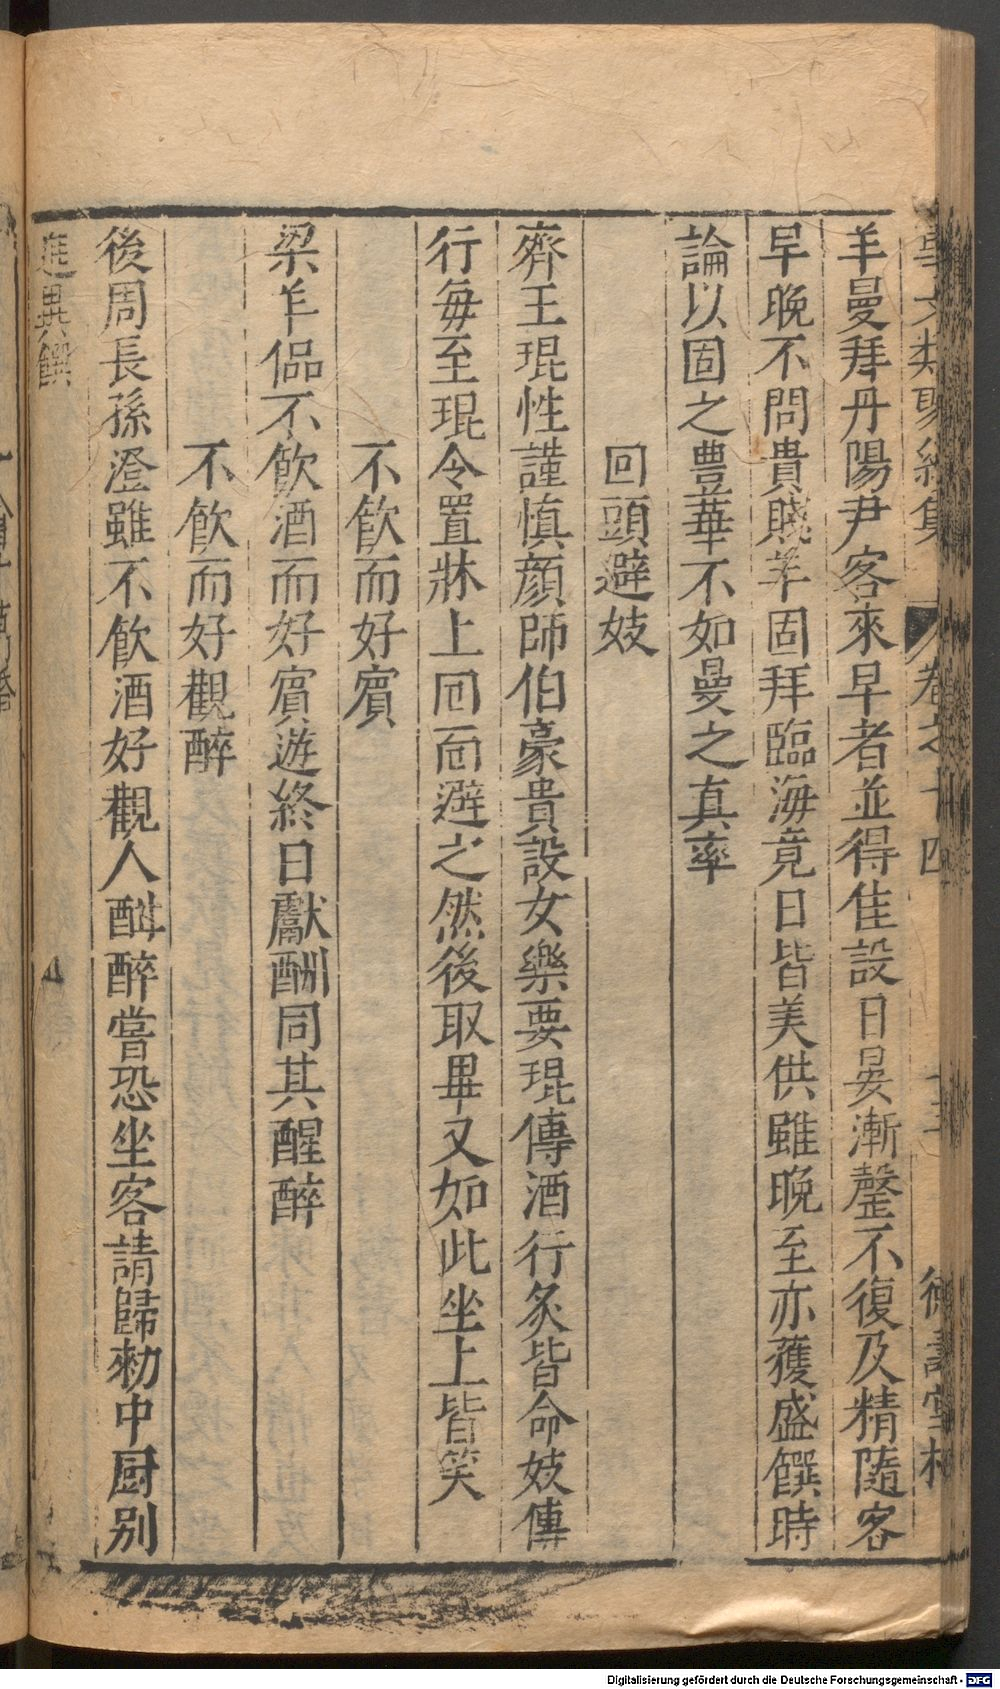 羊曼拜丹陽尹客來早者並得佳設日晏漸罄不復及精隨客
早晚不問貴賤羊固拜臨海竟日皆美供雖晚至亦獲盛饌時
論以固之豊華不如曼之真率
回頭避妓
齊王琨性謹慎顏師伯豪貴設女樂要琨傳酒行炙皆命妓傳
行毎至琨令置牀上回面避之然後取畢又如此坐上皆笑
不飲而好賓
梁羊侃不飲酒而好賓遊終日獻酬同其醒醉
不飲而好觀醉
後周長孫澄雖不飲酒好觀人酣醉嘗恐坐客請歸勑中厨别
進異饌
卷之十四
Digitalisierung gefördert durch die Deutsche Forschungsgemeinschaft - DFG